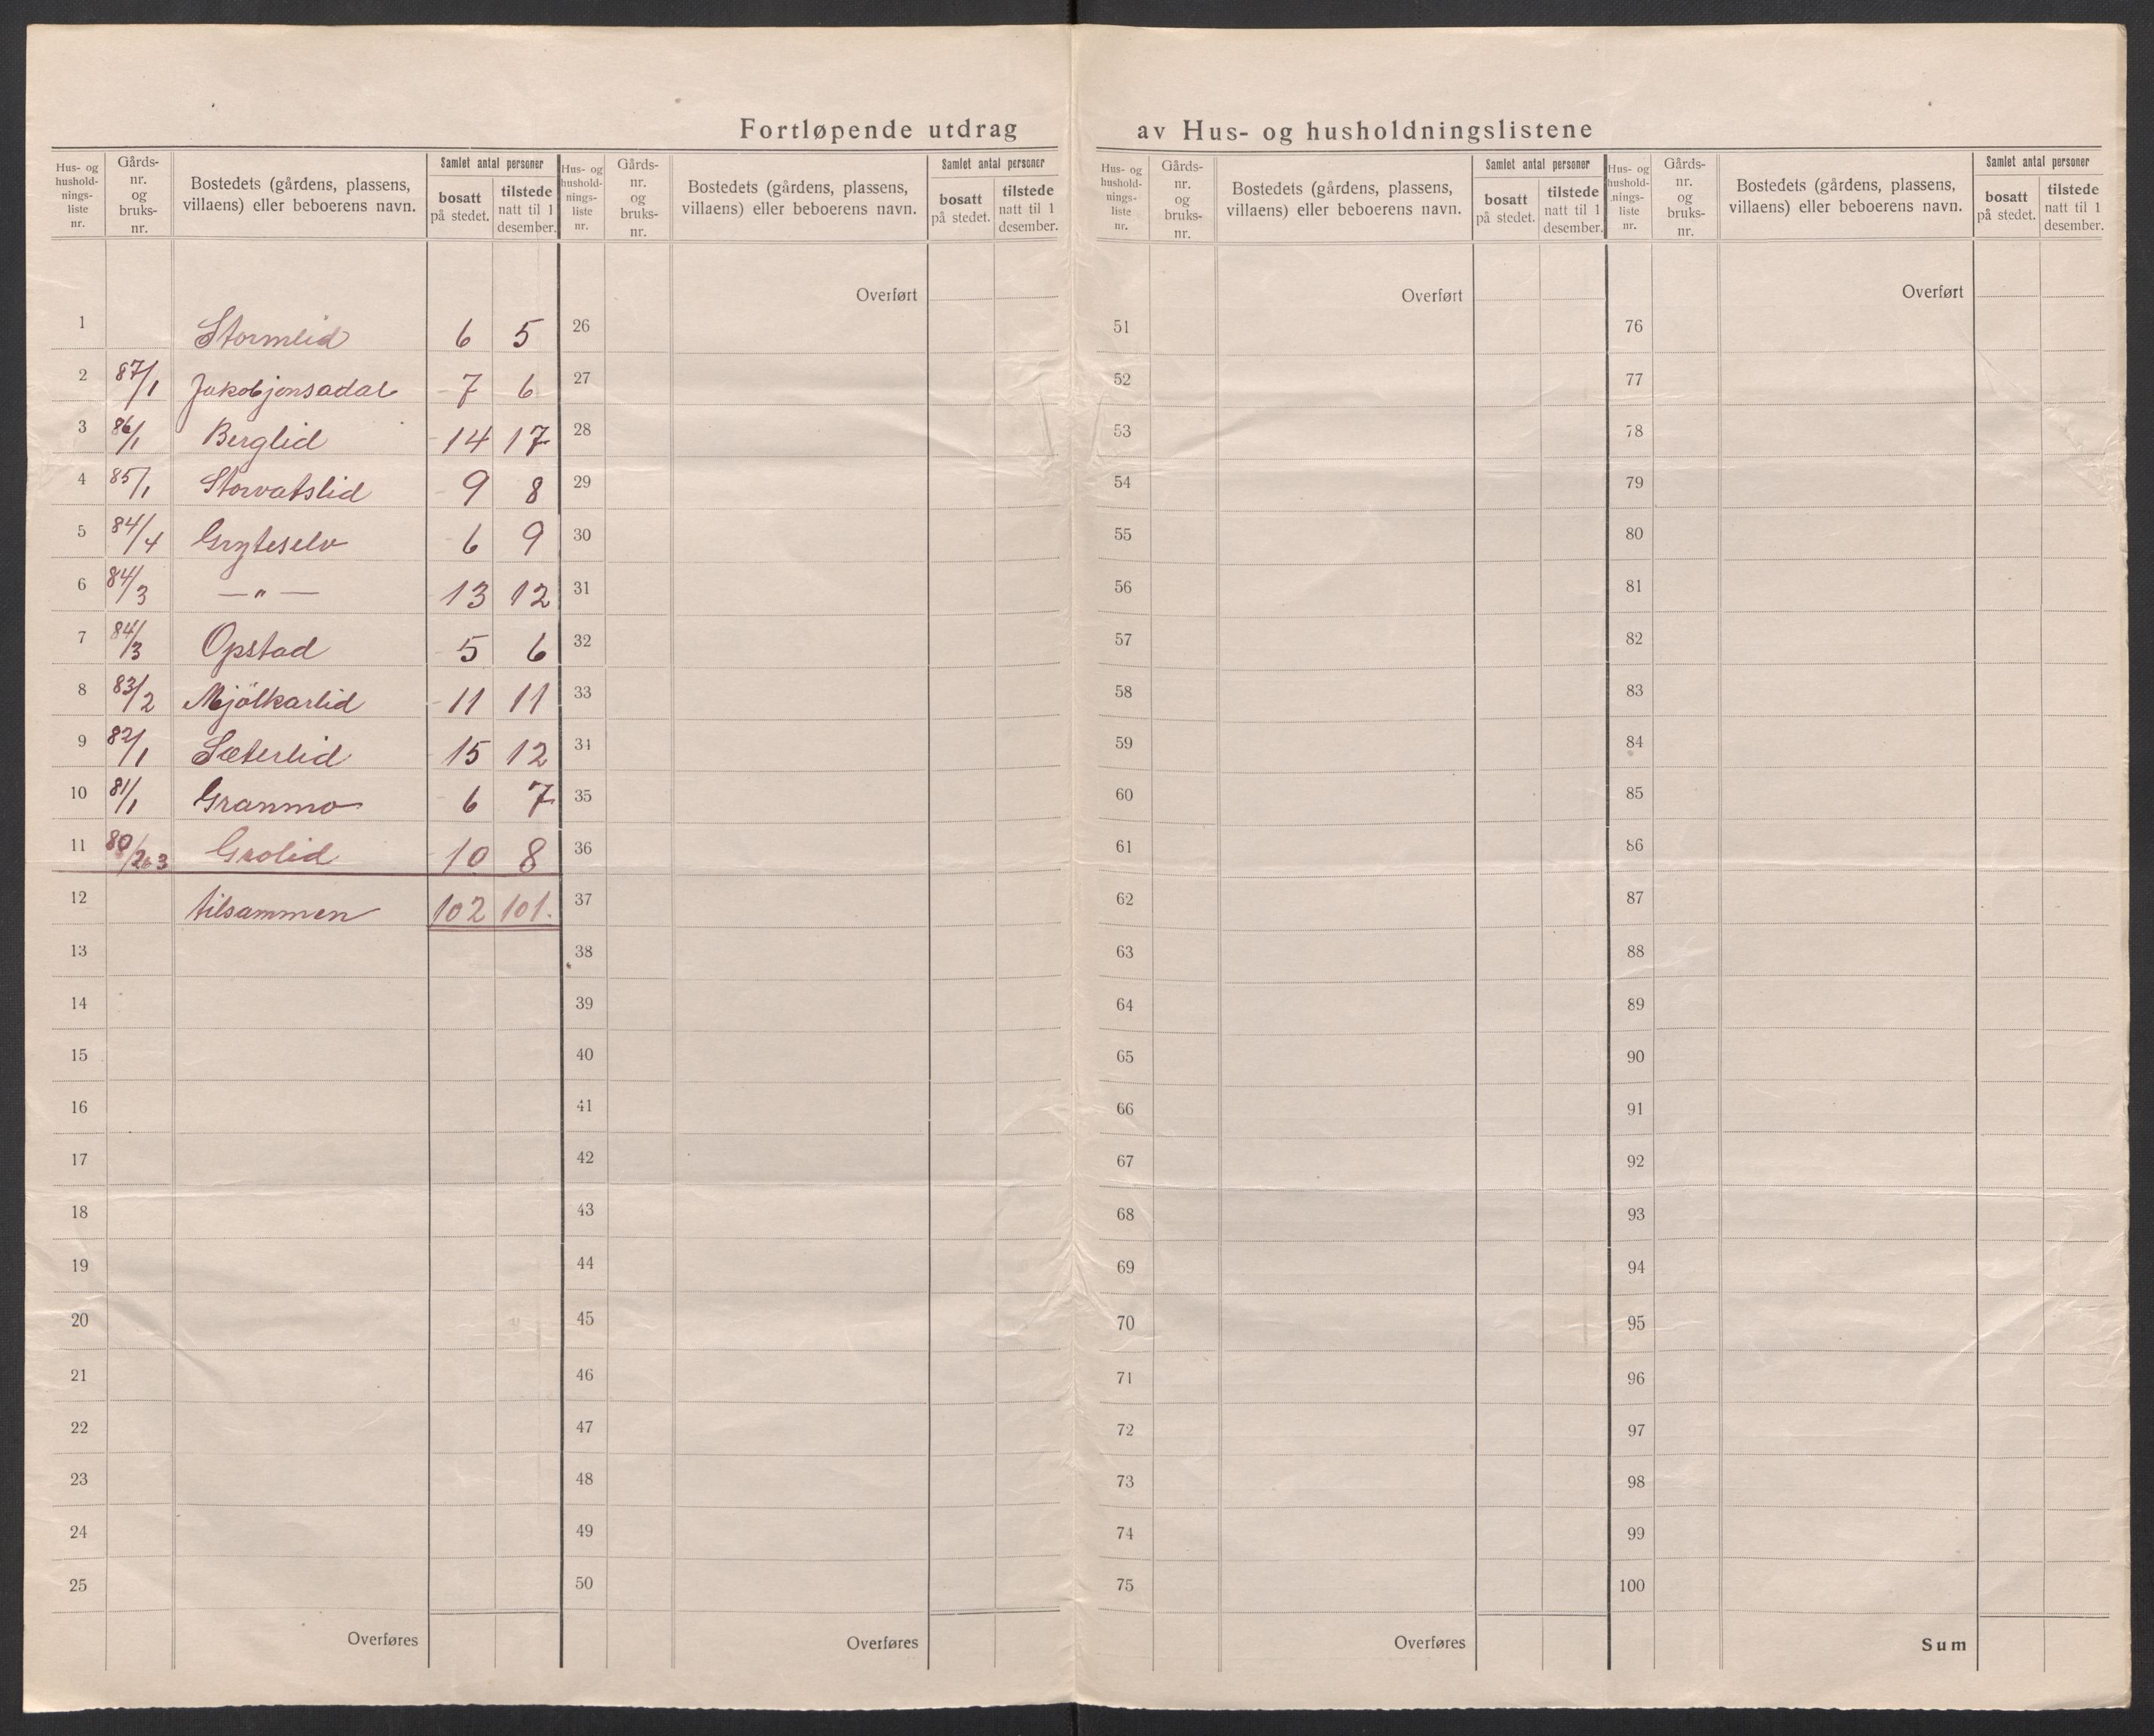 Fortløpende utdrag av Hus- og husholdningslistene
Hus- og hushold- nings- liste nr. | Gårds- nr. og bruks- nr. | Bostedets (gårdens, plassens, villaens) eller beboerens navn. | Samlet antal personer | bosatt på stedet. | tilstede natt til 1 desember.
1 Stormlid 6 5
2 87/1 Jakobjonsadal 7 6
3 86/1 Berglid 14 17
4 85/1 Storvatslid 9 8
5 84/4 Gryteselv 6 9
6 84/3 — „ — 13 12
7 84/3 Opstad 5 6
8 83/2 Mjölkarlid 11 11
9 82/1 Sæterlid 15 12
10 81/1 Granmo 6 7
11 80/2&3 Grolid 10 8
12 tilsammen 102 101.
13
14
15
16
17
18
19
20
21
22
23
24
25
Overføres
Hus- og hushold- nings- liste nr. | Gårds- nr. og bruks- nr. | Bostedets (gårdens, plassens, villaens) eller beboerens navn. | Samlet antal personer | bosatt på stedet. | tilstede natt til 1 desember.
Overført
26
27
28
29
30
31
32
33
34
35
36
37
38
39
40
41
42
43
44
45
46
47
48
49
50
Overføres
Hus- og hushold- nings- liste nr. | Gårds- nr. og bruks- nr. | Bostedets (gårdens, plassens, villaens) eller beboerens navn. | Samlet antal personer | bosatt på stedet. | tilstede natt til 1 desember.
Overført
51
52
53
54
55
56
57
58
59
60
61
62
63
64
65
66
67
68
69
70
71
72
73
74
75
Overføres
Hus- og hushold- nings- liste nr. | Gårds- nr. og bruks- nr. | Bostedets (gårdens, plassens, villaens) eller beboerens navn. | Samlet antal personer | bosatt på stedet. | tilstede natt til 1 desember.
Overført
76
77
78
79
80
81
82
83
84
85
86
87
88
89
90
91
92
93
94
95
96
97
98
99
100
Sum